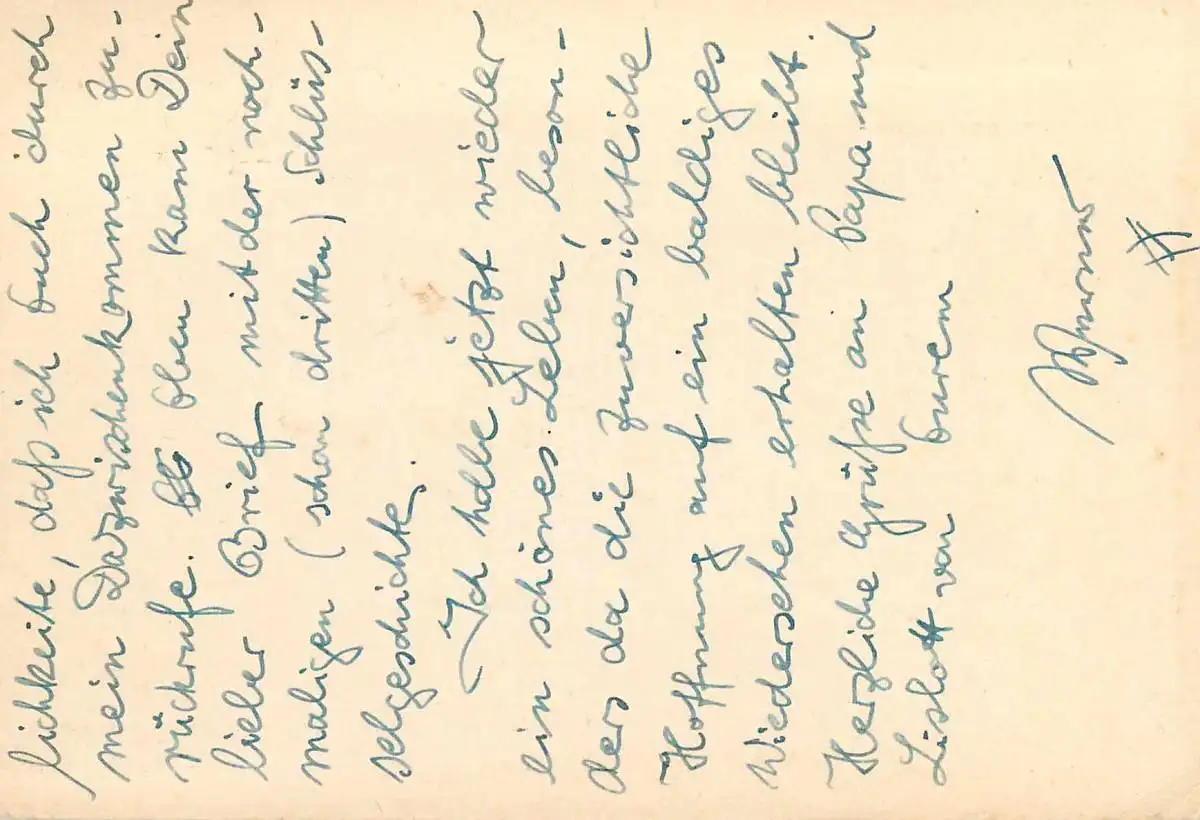 lichkeite, daß ich Euch durch
mein Dazwischenkommen zu-
rückrufe. Eben kam Dein
lieber Brief mit der noch-
maligen (schon dritten) Schlüs-
selgeschichte.
Ich habe jetzt wieder
ein schönes Leben, beson-
ders da die zuversichtliche
Hoffnung auf ein baldiges
Wiedersehen erhalten bleibt.
Herzliche Grüße an Papa und
Lislott von Eurem